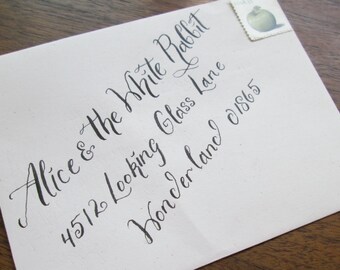 Alice & the White Rabbit
4512 Looking Glass Lane
Wonderland 01865